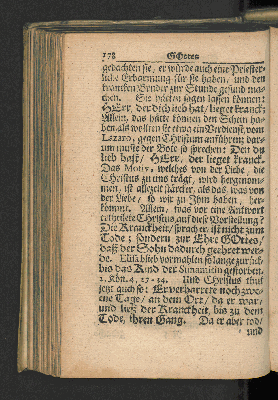 178 GOttes
gedachten sie, er würde auch eine Priester-
liche Erbarmung für sie haben, und den
krancken Bruder zur Stunde gesund ma-
chen. Sie hätten sagen lassen können:
HErr, der dich lieb hat, lieget kranck:
Allein, das hätte können den Schein ha-
ben als wollten sie etwa ein Verdienst vom
Lazaro, gegen Christum anführen; dar-
um muste der Bote so sprechen: Den du
lieb hast, HErr, der lieget kranck.
Das Motiv, welches von der Liebe, die
Christus zu uns trägt, wird hergenom-
men, ist allezeit stärcker, als das, was von
der Liebe, so wir zu Ihm haben, her-
kommt. Allein, was vor eine Antwort
ertheilete Christus auf diese Vorstellung?
Die Kranckheit, sprach er, ist nicht zum
Tode; sondern zur Ehre GOttes,
daß der Sohn dadurch geehret wer-
de. Elisa blieb vormahln so lange zurück,
bis das Kind der Sunamitin gestorben.
2. Kön. 4, 27-34. Und Christus thut
jetzt auch so: Er verharrete noch zwo-
ene Tage, an dem Ort, da er war,
und ließ der Kranckheit, bis zu dem
Tode, ihren Gang. Da er aber tod,
und